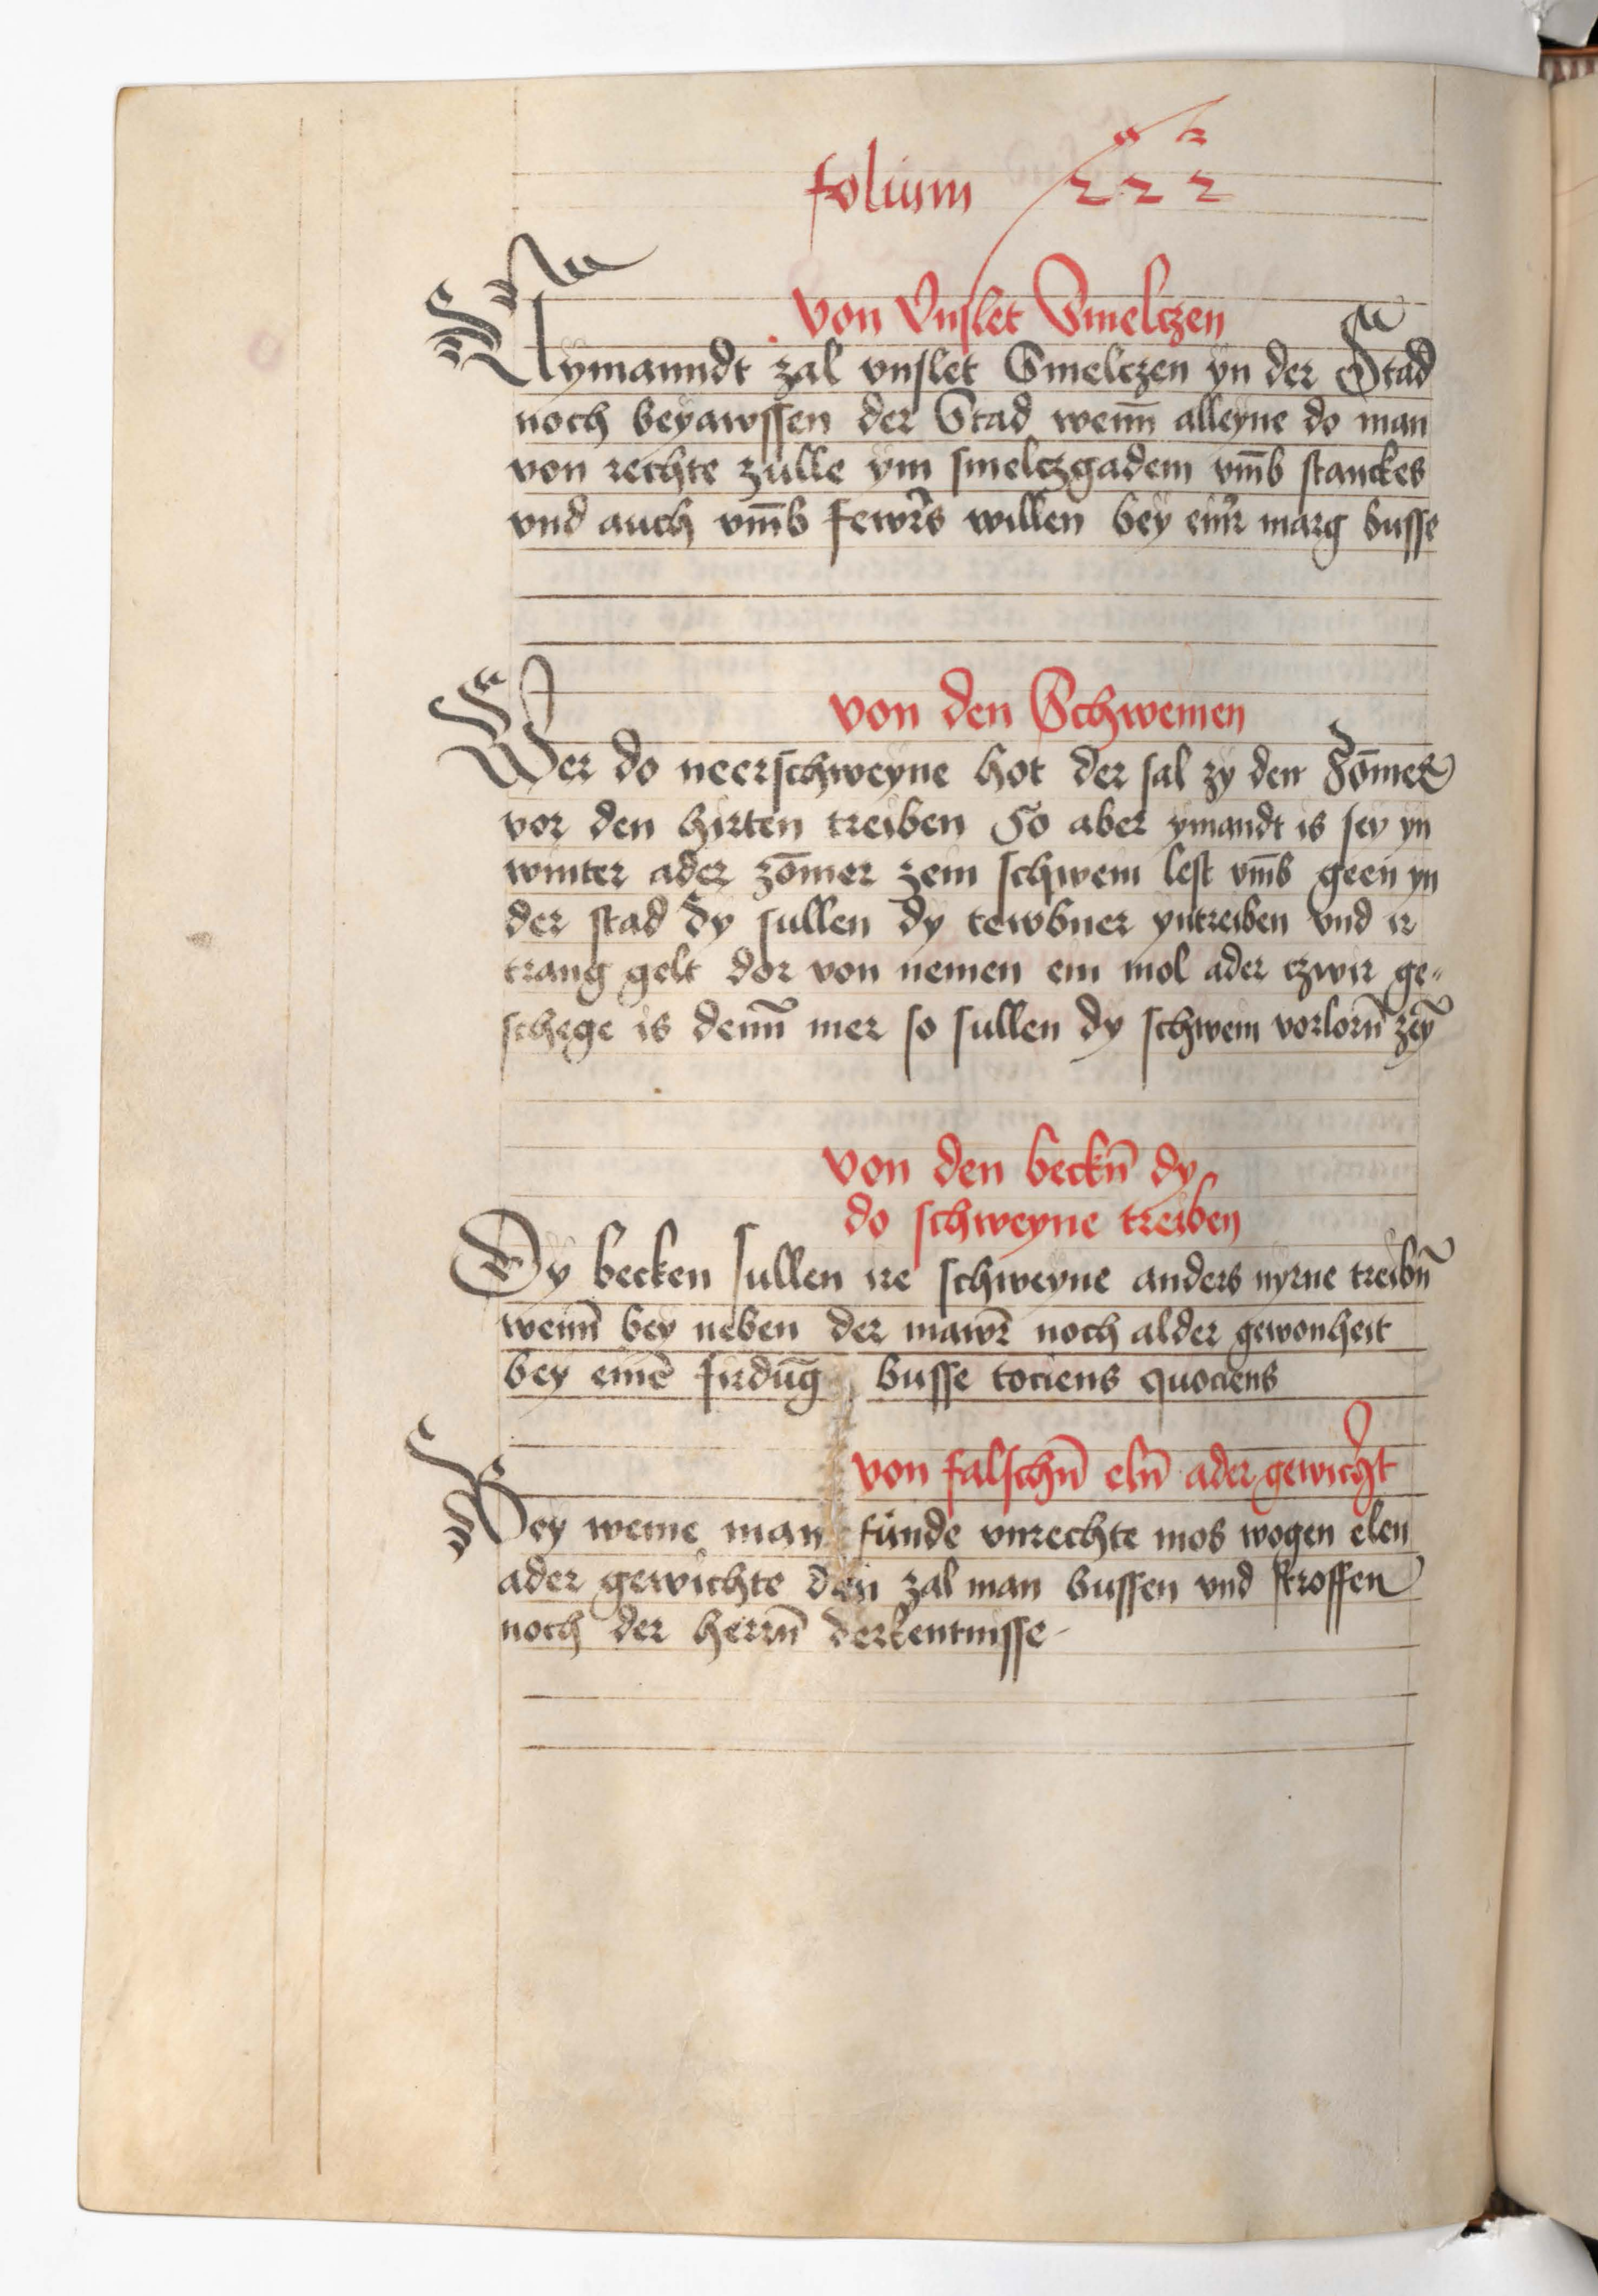 folium 222
von Vnslet Smelczen
Nymanndt zal vnslet Smelczen yn der Stad
noch beyawssen der Stad wenn̄ alleyne do man
von rechte zulle ym smelczgadem vm̄b stanckes
vnd auch vm̄b fewrs willen bey einr marg busse
von den Schweinen
Wer do neerschweyne hot der sal zy den Som̄er
vor den hirten treiben So aber ymandt is sey yn
winter ader zom̄er zein schwein lest vm̄b geen yn
der stad dy sullen dy tewbner yntreiben vnd ir
trang gelt dor von nemen ein mol ader czwir ge-
schege is denn̄ mer so sullen dy schwein vorlorn̄ zeȳ
von den beckn̄ dy
do schweyne treiben
Dy becken sullen ire schweyne anders nyrne treibn̄
wenn̄ bey neben der mawr̄ noch alder gewonheit
bey einē firdūg busse tociens quociens
von falschn̄ eln̄ ader gewicht
Bey weme man funde vnrechte mos wogen elen
ader gewichte den zal man bussen vnd stroffen
noch der herrn̄ derkentnisse